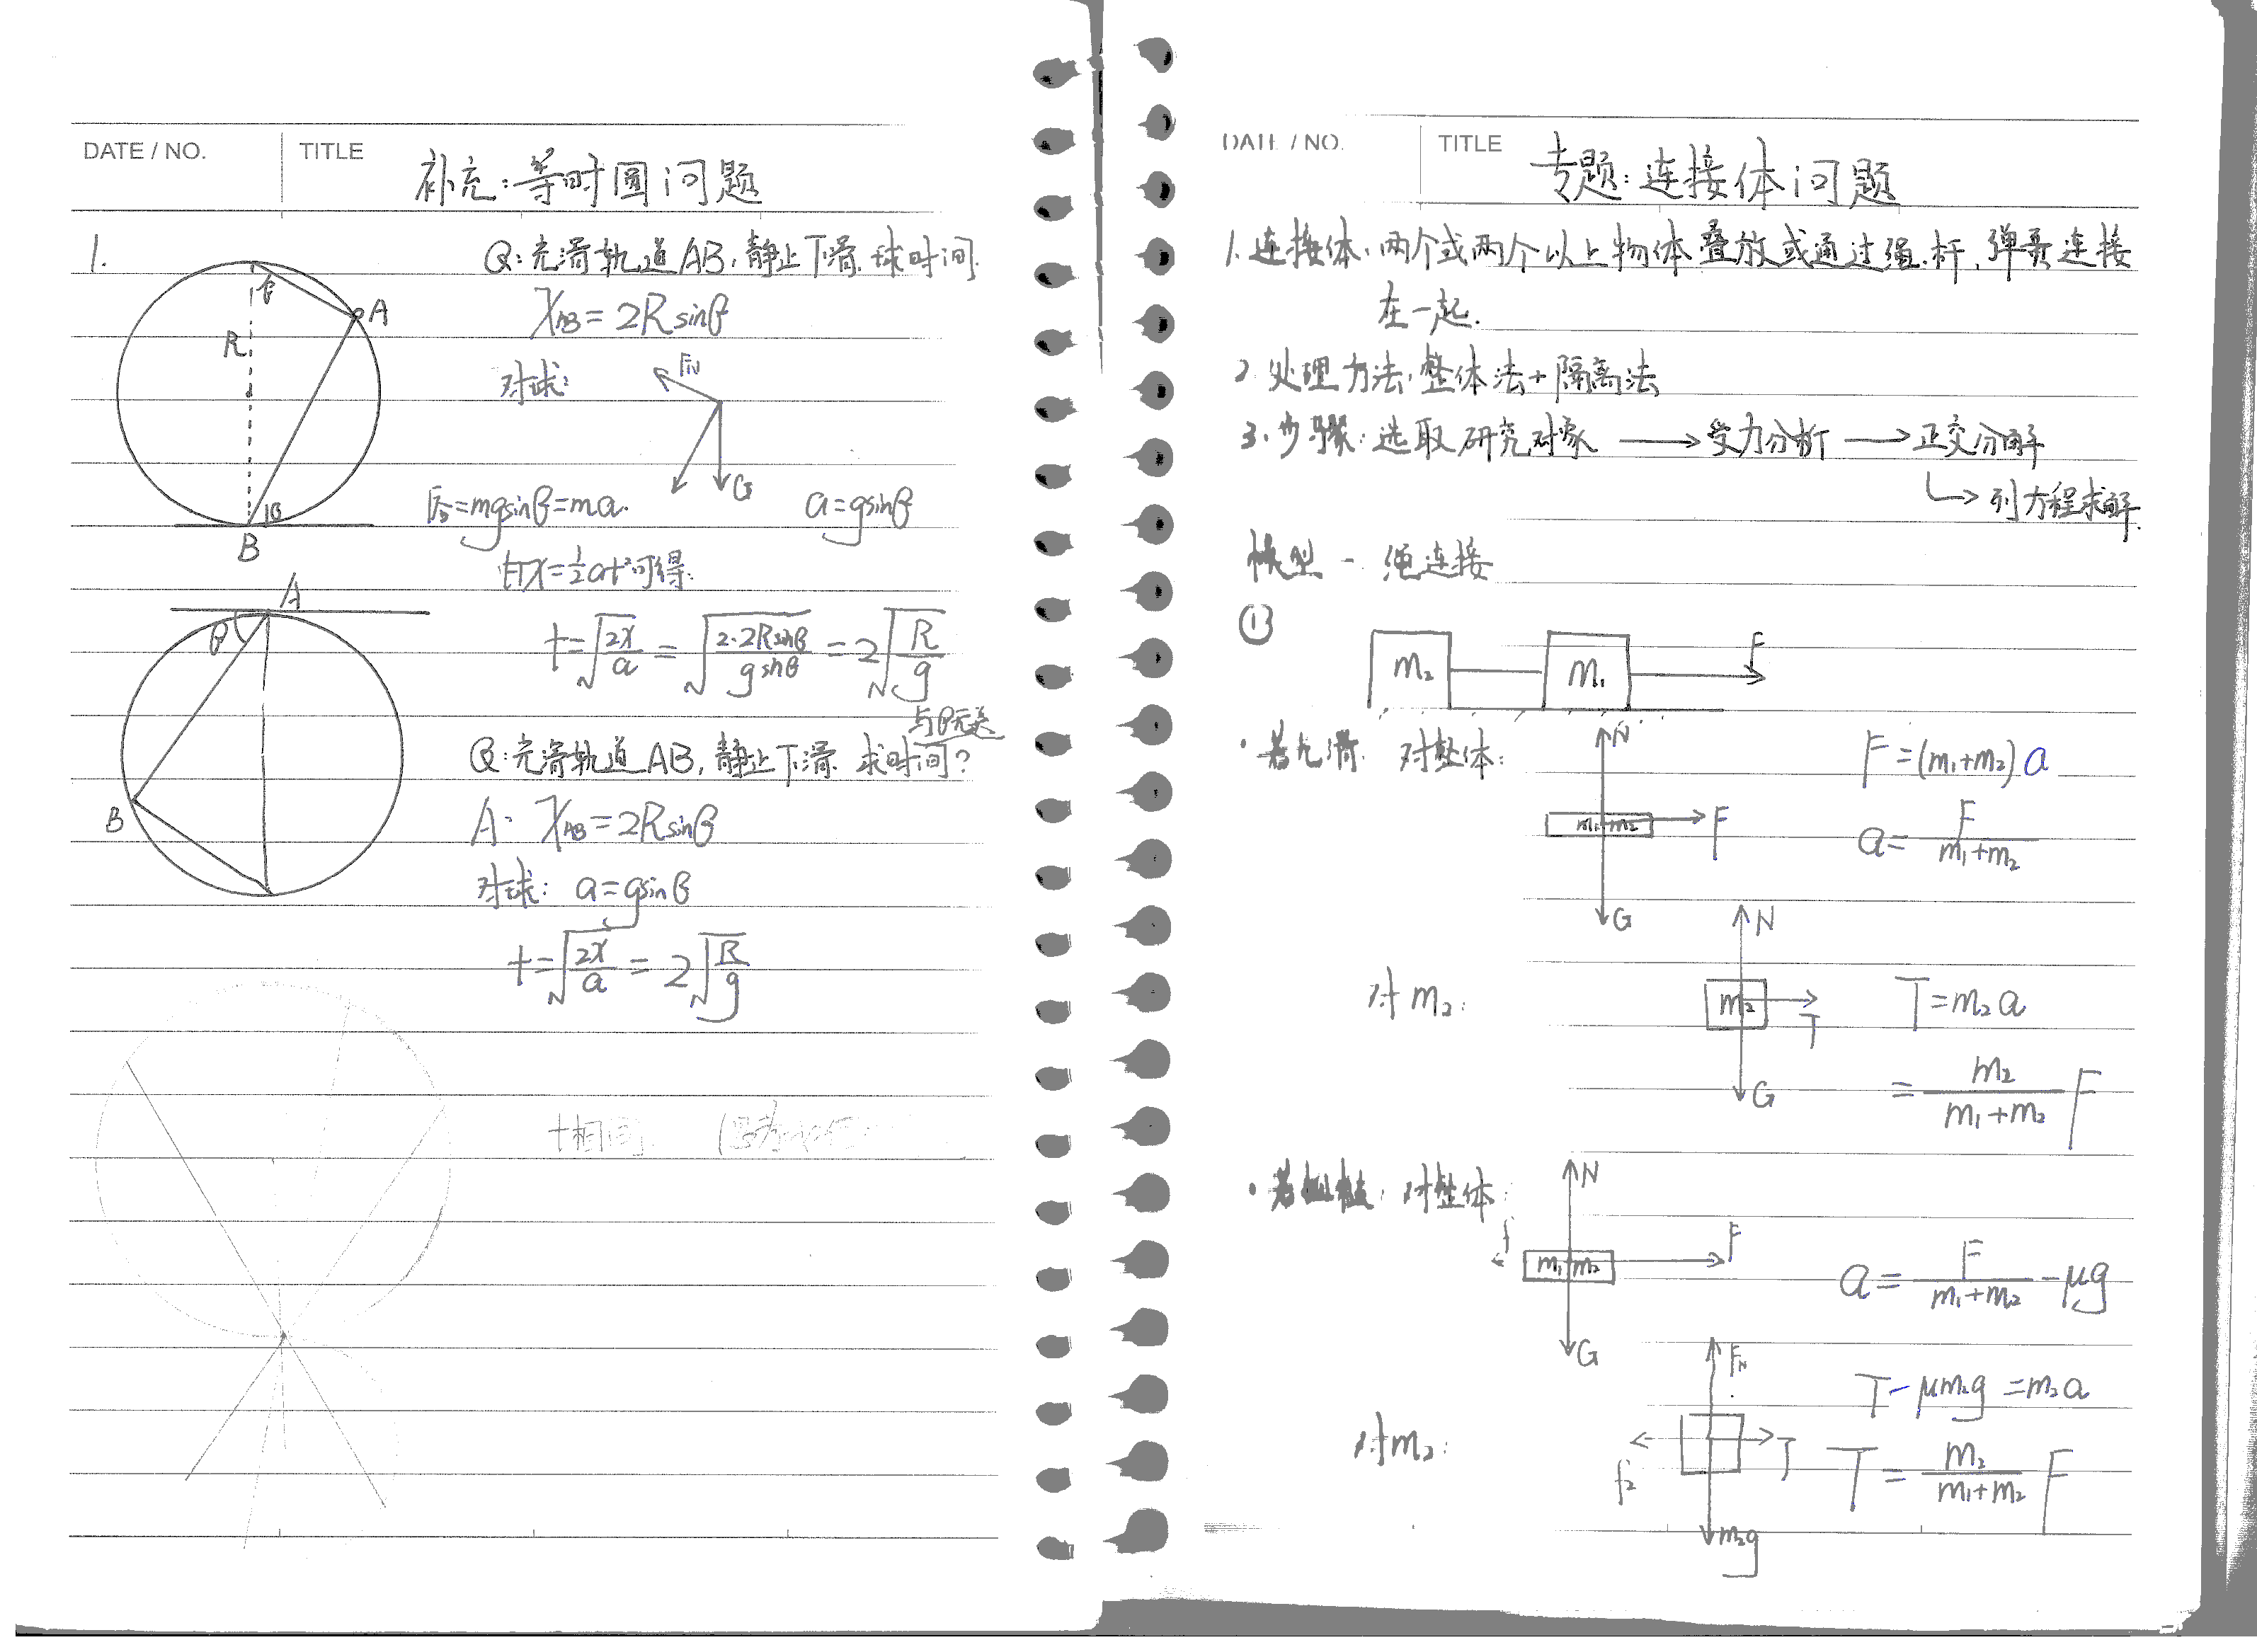 DATE / NO. TITLE 补充:等时圆问题
1. Q:光滑轨道AB,静止下滑.球时间.
θ A
R
X_AB=2Rsinθ
对球: F_N
G
F合=mgsinθ=ma. a=gsinθ
θ
B
由x=½at²可得:
A
θ
t=√(2x/a)=√(2·2Rsinθ/gsinθ)=2√(R/g)
与θ无关
Q:光滑轨道AB,静止下滑.求时间?
B
A: X_AB=2Rsinθ
对球: a=gsinθ
t=√(2x/a)=2√(R/g)
t相同.
DATE / NO. TITLE 专题:连接体问题
1.连接体:两个或两个以上物体叠放或通过绳.杆,弹簧连接
在一起.
2.处理方法:整体法+隔离法
3.步骤:选取研究对象 → 受力分析 → 正交分解
↳ 列方程求解.
模型一 绳连接
①
m₂ m₁ F
·若光滑. 对整体: N F=(m₁+m₂)a
m₁+m₂ F a=F/(m₁+m₂)
G
N
对m₂: m₂ T T=m₂a
G =m₂/(m₁+m₂) F
·若粗糙: 对整体: N
f m₁ m₂ F a=F/(m₁+m₂)-μg
G
F_N T-μm₂g=m₂a
对m₂: f₂ T T=m₂/(m₁+m₂) F
m₂g